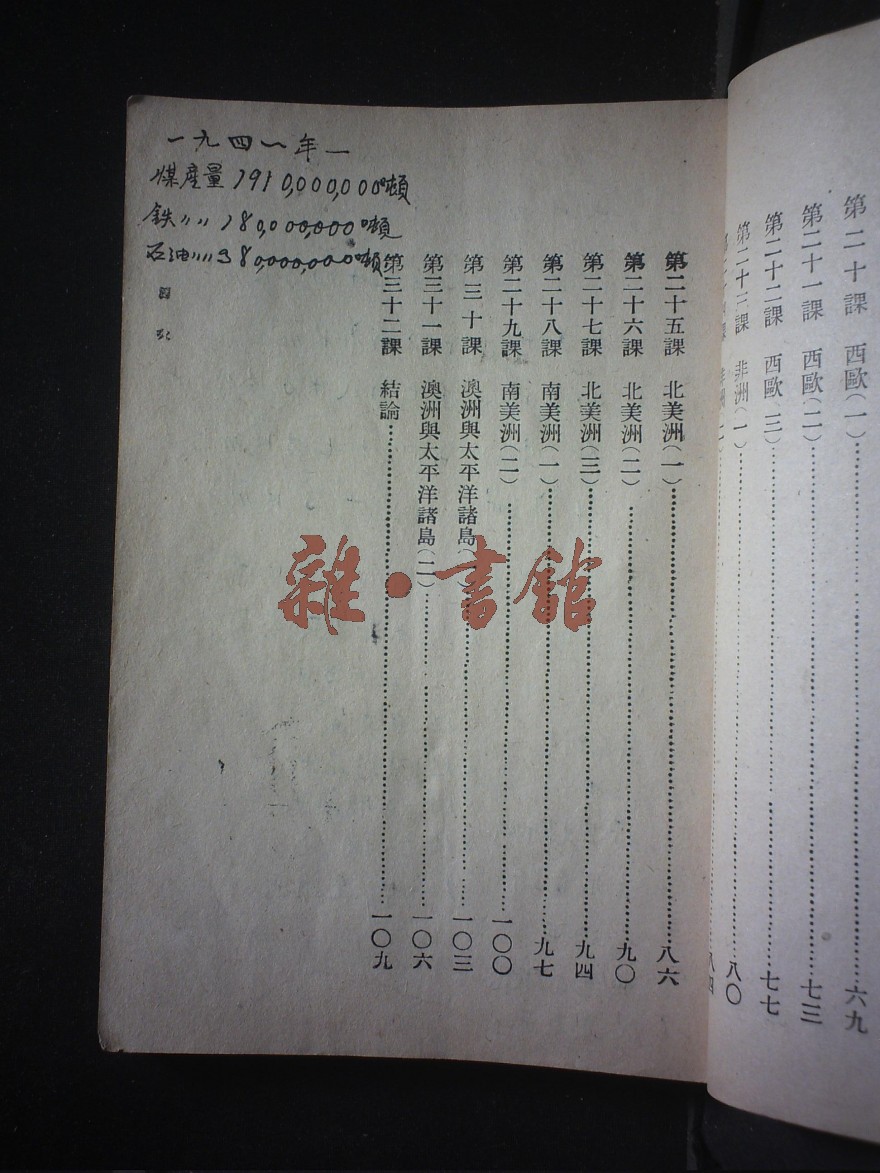 第二十課 西歐(一)……六九
第二十一課 西歐(二)……七三
第二十二課 西歐(三)……七七
第二十三課 非洲(一)……八〇
第二十五課 北美洲(一)……八六
第二十六課 北美洲(二)……九〇
第二十七課 北美洲(三)……九四
第二十八課 南美洲(一)……九七
第二十九課 南美洲(二)……一〇〇
第三十課 澳洲與太平洋諸島(一)……一〇三
第三十一課 澳洲與太平洋諸島(二)……一〇六
第三十二課 結論……一〇九
一九四一年
煤產量1910,000,000噸
鉄〃〃180,000,000噸
石油〃〃380,000,000噸
雜·書館